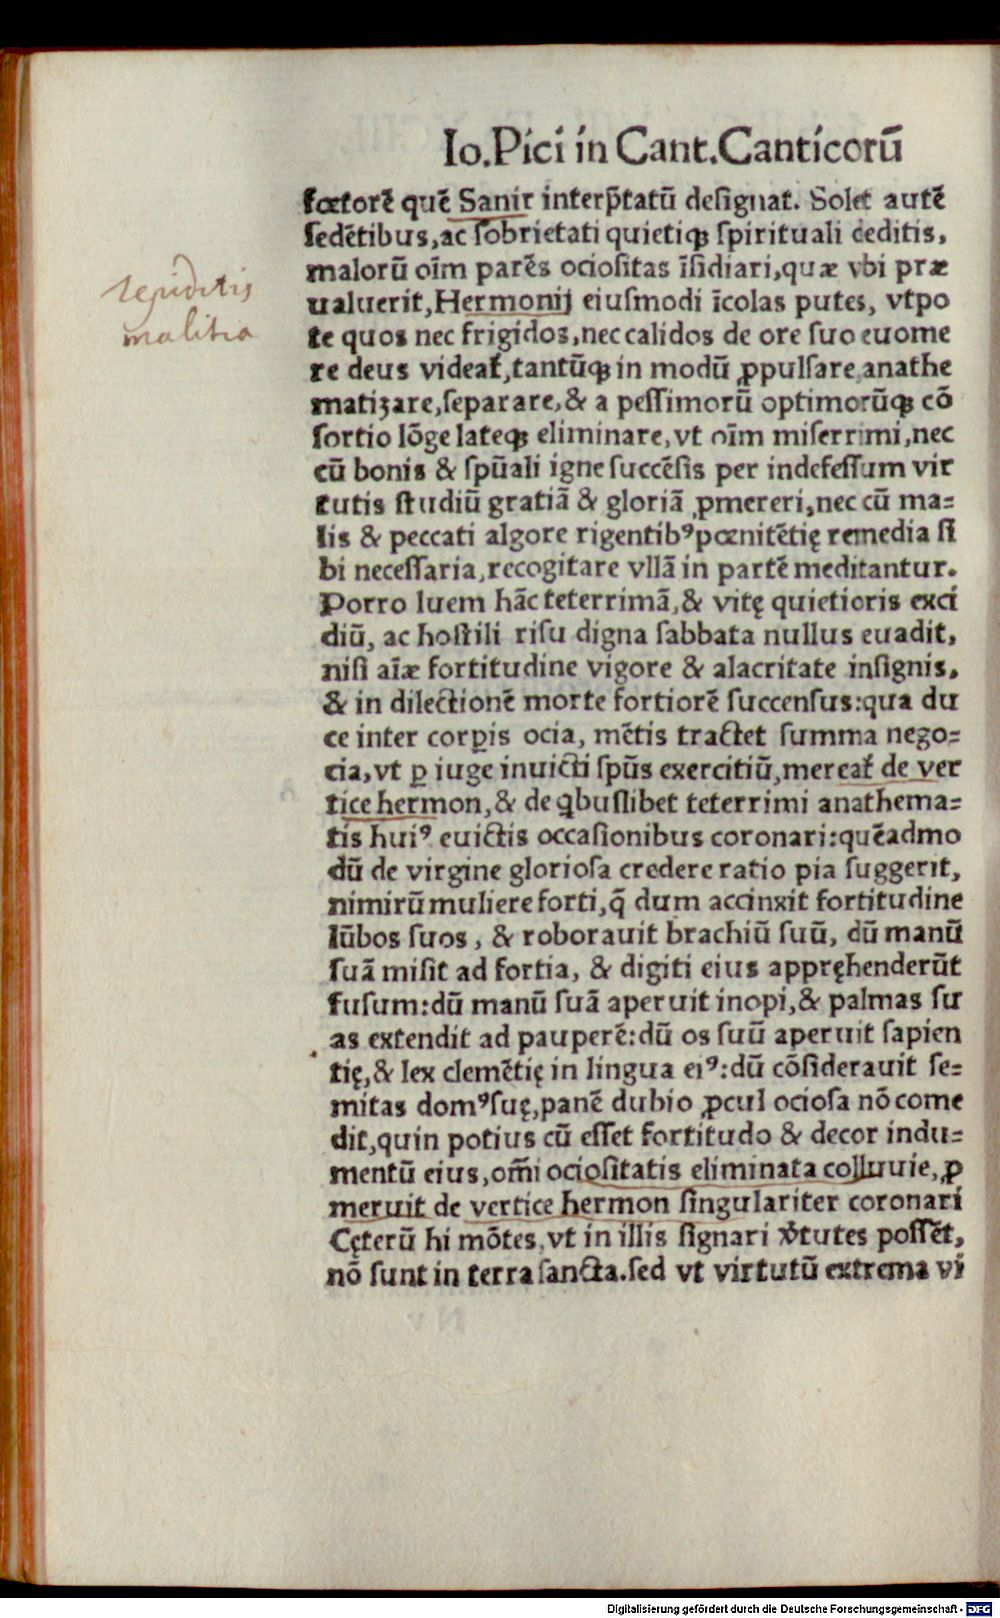 Io.Pici in Cant.Canticorū
fœtorē quē Sanir interp̄tatū deſignat. Solet autē
ſedētibus,ac ſobrietati quietiqꝫ ſpirituali deditis,
malorū oīm parēs ocioſitas īſidiari,quæ vbi præ
ualuerit,Hermonij eiuſmodi īcolas putes, vtpo
te quos nec frigidos,nec calidos de ore ſuo euome
re deus videat̃,tantūqꝫ in modū ꝓpulſare,anathe
matiȝare,ſeparare,& a peſſimorū optimorūqꝫ cō
ſortio lōge lateqꝫ eliminare,vt oīm miſerrimi,nec
cū bonis & ſpūali igne ſuccēſis per indefeſſum vir
tutis ſtudiū gratiā & gloriā ꝓmereri,nec cū ma=
lis & peccati algore rigentibꝰ pœnitētię remedia ſi
bi neceſſaria,recogitare vllā in partē meditantur.
Porro luem hāc teterrimā,& vitę quietioris exci
diū, ac hoſtili riſu digna ſabbata nullus euadit,
niſi aīæ fortitudine vigore & alacritate inſignis,
& in dilectionē morte fortiorē ſuccenſus:qua du
ce inter corꝑis ocia, mētis tractet ſumma nego=
cia,vt ꝑ iuge inuicti ſpūs exercitiū,mereat̃ de ver
tice hermon,& de qͥbuſlibet teterrimi anathema=
tis huiꝰ euictis occaſionibus coronari:quēadmo
dū de virgine glorioſa credere ratio pia ſuggerit,
nimirū muliere forti,q̄ dum accinxit fortitudine
lūbos ſuos, & roborauit brachiū ſuū, dū manū
ſuā miſit ad fortia, & digiti eius appręhenderūt
fuſum:dū manū ſuā aperuit inopi,& palmas ſu
as extendit ad pauperē:dū os ſuū aperuit ſapien
tię,& lex clemētię in lingua eiꝰ:dū cōſiderauit ſe=
mitas domꝰ ſuę,panē dubio ꝓcul ocioſa nō come
dit,quin potius cū eſſet fortitudo & decor indu=
mentū eius,om̄i ocioſitatis eliminata colluuie,ꝓ
meruit de vertice hermon ſingulariter coronari
Cęterū hi mōtes,vt in illis ſignari v̄tutes poſſēt,
nō ſunt in terra ſancta.ſed vt virtutū extrema vi
tepiditatis
malitia
Digitalisierung gefördert durch die Deutsche Forschungsgemeinschaft - DFG